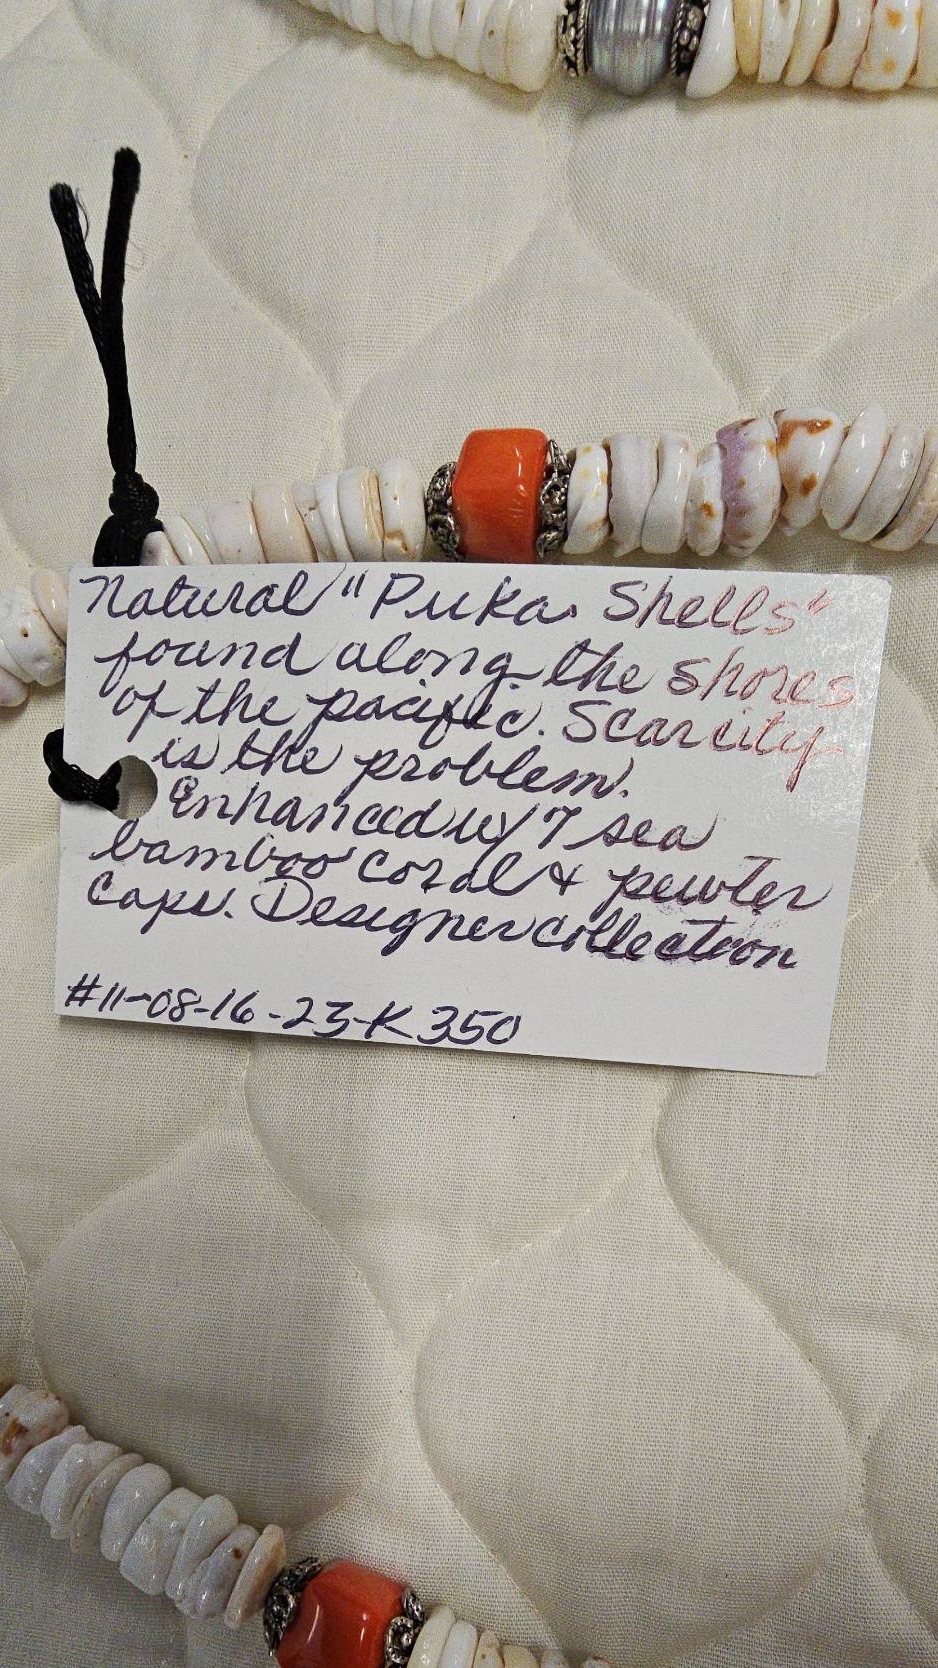 Natural "Puka Shells"
found along the shores
of the pacific. Scarcity
is the problem.
Enhanced w/ 7 sea
bamboo coral & pewter
caps. Designer collection
#11-08-16-23-K 350